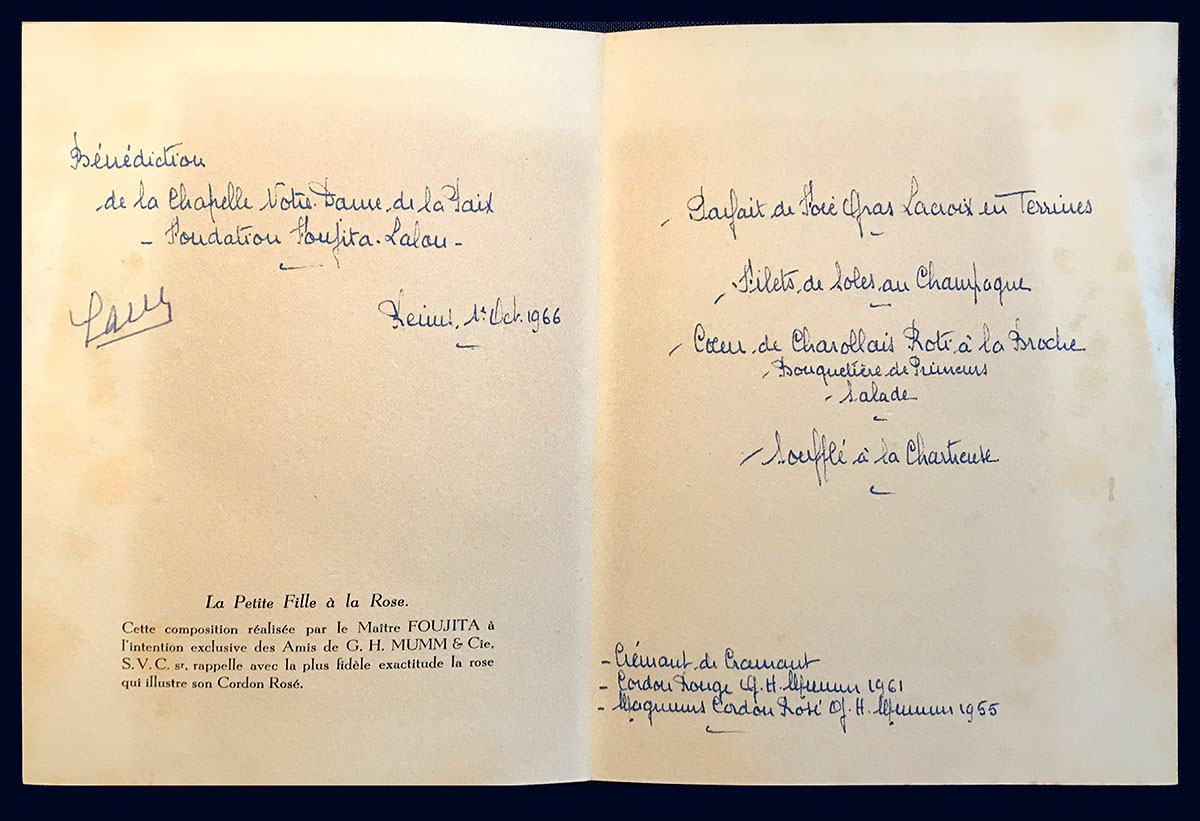 Bénédiction
de la Chapelle Notre-Dame de la Paix
- Fondation Foujita-Lalou -
Reims, 1er Oct. 1966
La Petite Fille à la Rose.
Cette composition réalisée par le Maître FOUJITA à
l'intention exclusive des Amis de G. H. MUMM & Cie,
S.V.C. sr, rappelle avec la plus fidèle exactitude la rose
qui illustre son Cordon Rosé.
- Parfait de Foie Gras Lacroix en Terrines
- Filets de Soles au Champagne
- Cœur de Charollais Roti à la Broche
- Bouquetière de Primeurs
- Salade
- Soufflé à la Chartreuse
- Crémant de Cramant
- Cordon Rouge G. H. Mumm 1961
- Magnums Cordon Rosé G. H. Mumm 1955